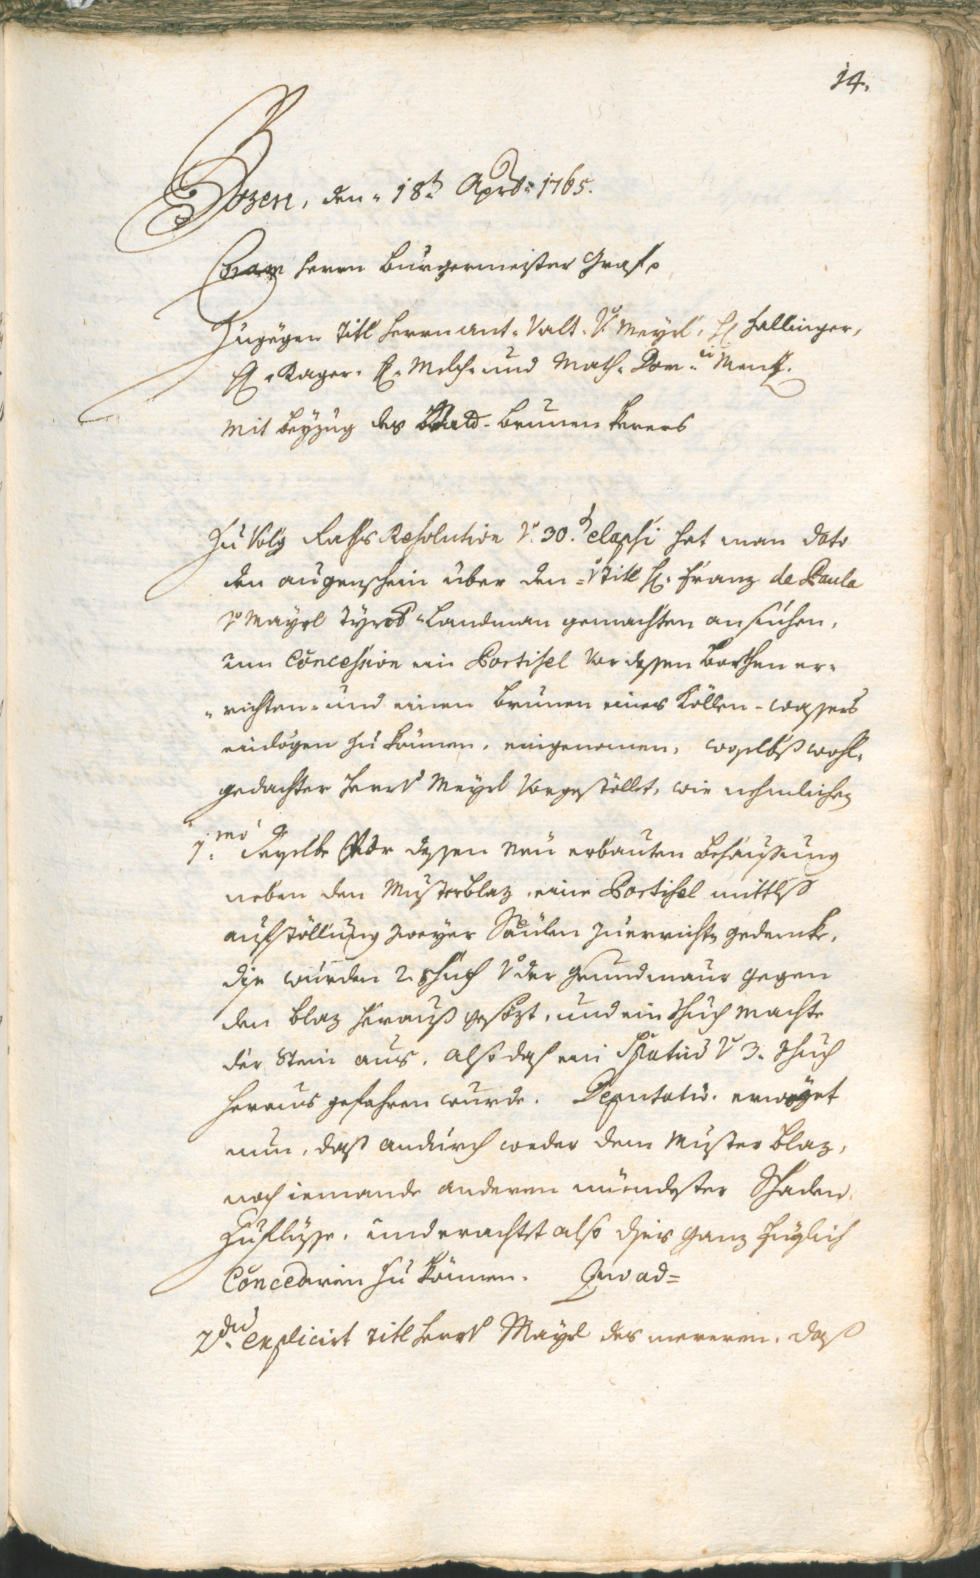 14.
Bozen, den 18t Aprl: 1765.
Coram herrn burgermeister Graff
Zugegen Titl herrn Ant: Valt: v: Meyrl, H: Hallinger,
H: Rager, H: Melch: und Math: Dom: Menz.
mit beyzug des Stadt-brunen kerers
Zu Volg Raths Resolution v: 30. elapsi hat man dato
den augenschein über den Titl H: Franz de Paula
v: Mayrl Tyrol: Landman gemachten ansuchen,
um Concession ein Portisel vor dessen borthen er=
=richten- und einen brunen eines köllen-wassers
einlögen zu können, eingenomen, woselbst wohl=
gedachter herr v: Meyrl vorgestöllet, wie nehmlichen
1mo: derselbe vor dessen neu erbauten behausung
neben den Musterblaz eine Portisel mittlst
aufstöllung zweyer Säulen zuerrichten gedencke,
die wurden 2. schuch v: der grundmaur gegen
den blaz herauß gesözt, und ein schuch machte
der Stein aus, also daß ein Spatium v: 3. schuch
heraus gefahren wurde. Deputatio erwöget
nun, daß andurch weder dem Muster blaz,
noch iemande anderen mündester Schaden
zuflüsse, und erachtet also dises ganz füglich
Concedieren zu können. Quo ad=
2dum explicirt Titl herr v: Mayrl des mereren, daß